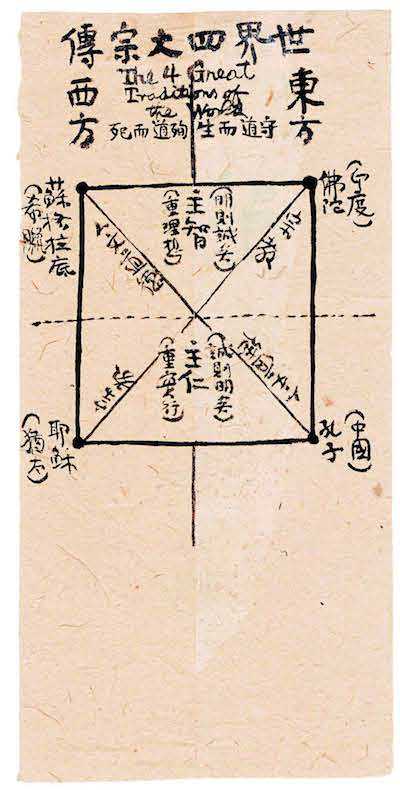 世界四大宗傳
The 4 Great
Traditions of
the World
東方
西方
守道而生 殉道而死
佛陀
(印度)
蘇格拉底
(希臘)
(明則誠矣)
主智
(重理想)
(誠則明矣)
主仁
(重實行)
(中國)
孔子
耶穌
(猶太)